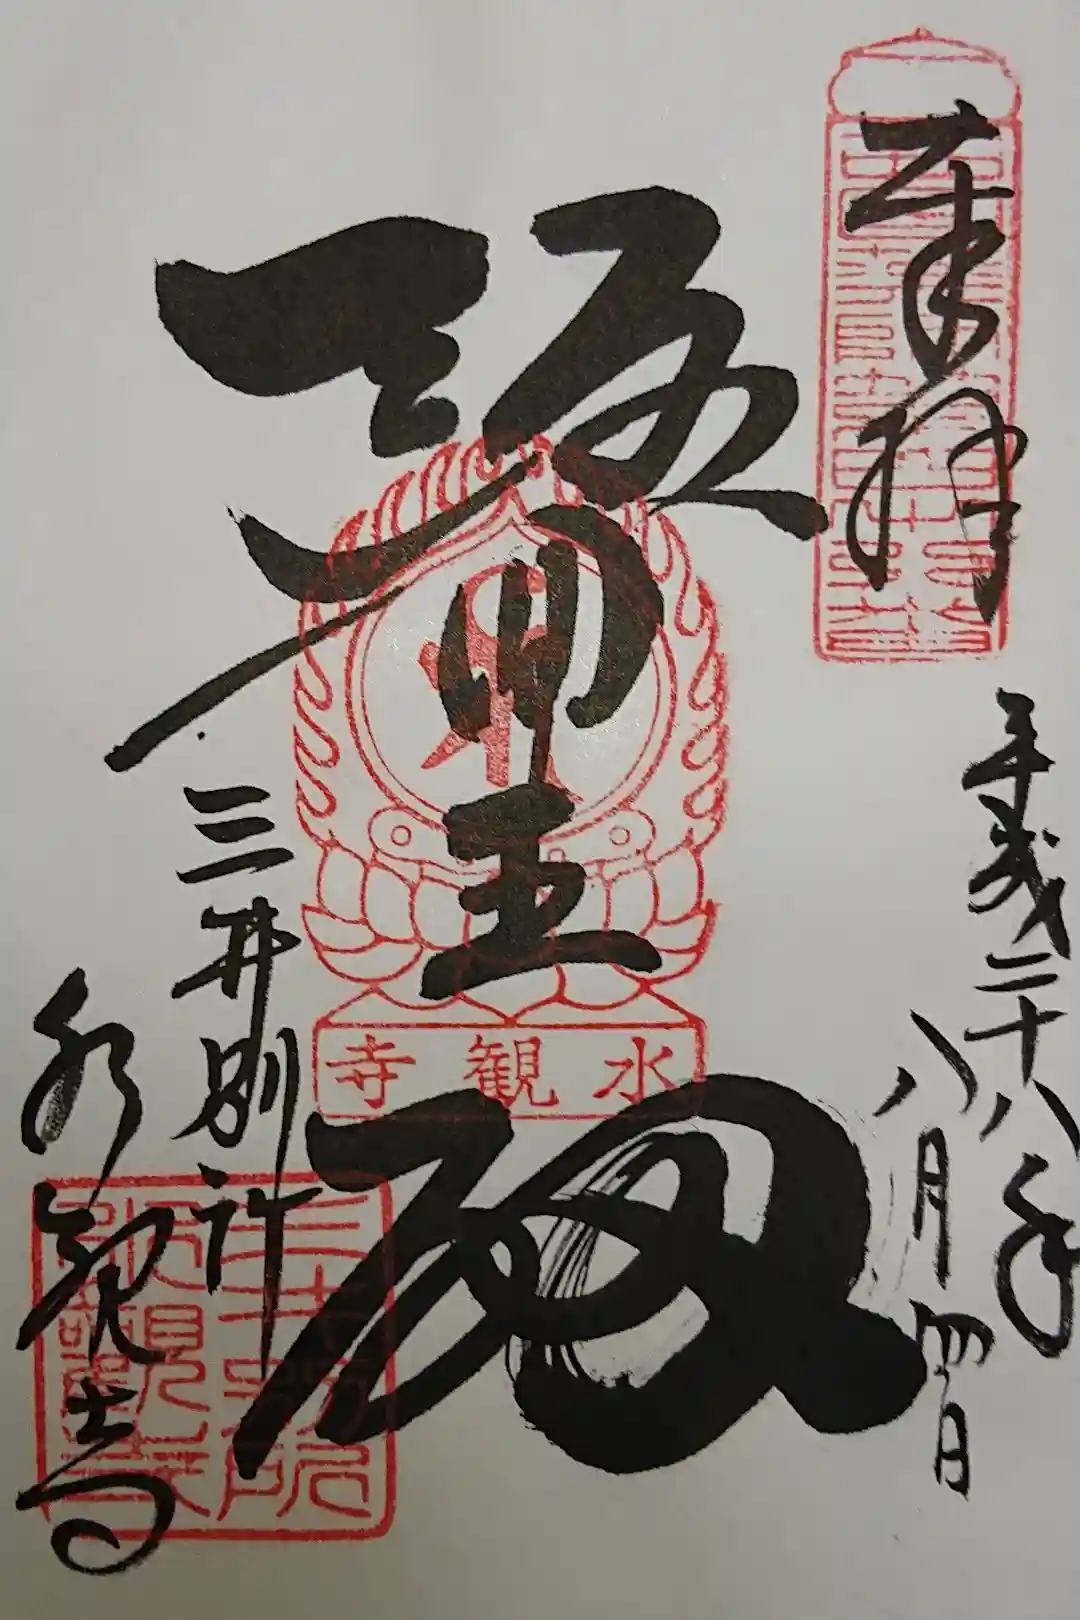 奉拝
平成二十八年
八月四日
醫王殿
水観寺
三井別所
水観寺
三井別所
水観寺